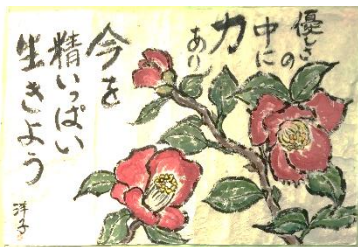 優しさ
の
中に
力
あり
今を
精いっぱい
生きよう
洋子